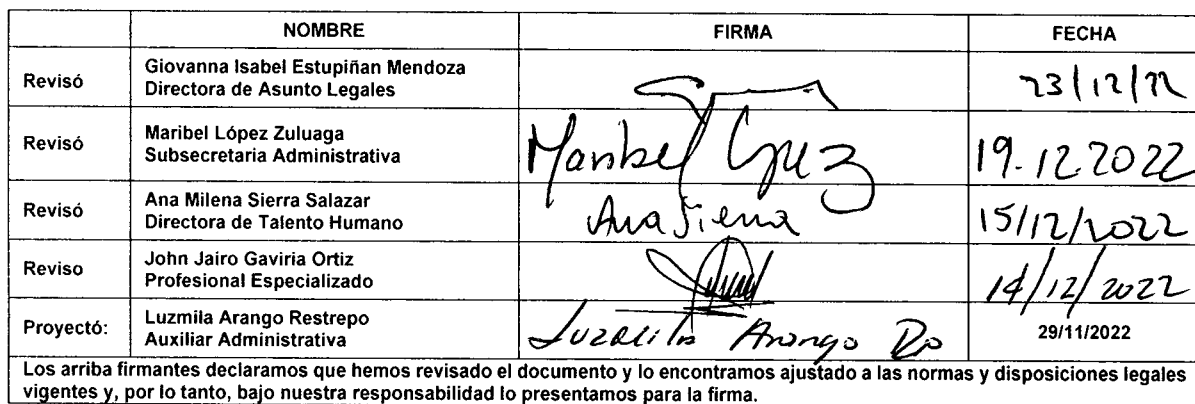 NOMBRE FIRMA FECHA
Revisó Giovanna Isabel Estupiñan Mendoza
Directora de Asunto Legales 23/12/22
Revisó Maribel López Zuluaga
Subsecretaria Administrativa Maribel López 19-12-2022
Revisó Ana Milena Sierra Salazar
Directora de Talento Humano Ana Sierra 15/12/2022
Reviso John Jairo Gaviria Ortiz
Profesional Especializado 14/12/2022
Proyectó: Luzmila Arango Restrepo
Auxiliar Administrativa Luzmila Arango Ro 29/11/2022
Los arriba firmantes declaramos que hemos revisado el documento y lo encontramos ajustado a las normas y disposiciones legales
vigentes y, por lo tanto, bajo nuestra responsabilidad lo presentamos para la firma.